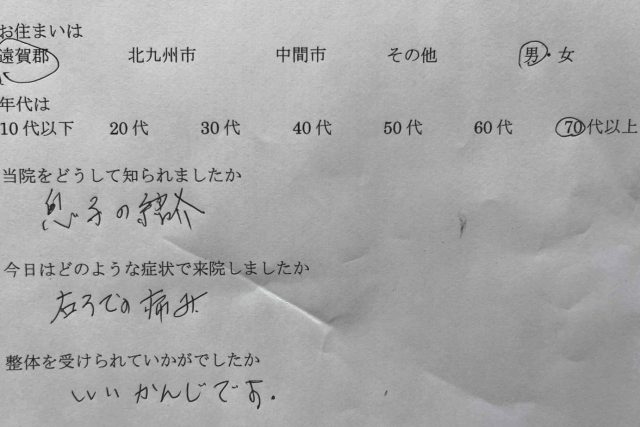 お住まいは
遠賀郡 北九州市 中間市 その他 男・女
年代は
10代以下 20代 30代 40代 50代 60代 70代以上
当院をどうして知られましたか
息子の紹介
今日はどのような症状で来院しましたか
右うでの痛み
整体を受けられていかがでしたか
いいかんじです.